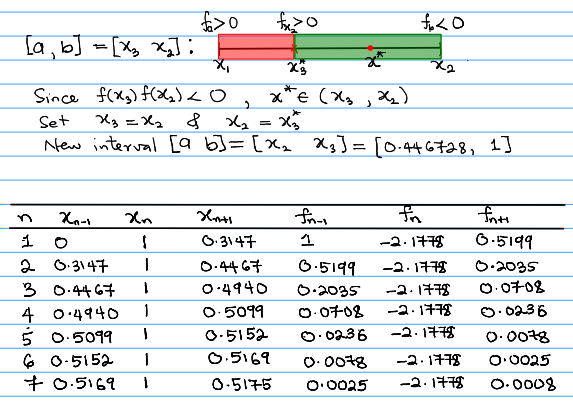 fₐ>0 fₓ₂>0 f_b<0
[a, b] = [x₃ x₂] :
x₁ x₃* x* x₂
Since f(x₃)f(x₂)<0 , x*∈(x₃ , x₂)
Set x₃=x₂ & x₂=x₃*
New interval [a b]=[x₂ x₃]=[0.446728, 1]
n xₙ₋₁ xₙ xₙ₊₁ fₙ₋₁ fₙ fₙ₊₁
1 0 1 0.3147 1 -2.1778 0.5199
2 0.3147 1 0.4467 0.5199 -2.1778 0.2035
3 0.4467 1 0.4940 0.2035 -2.1778 0.0708
4 0.4940 1 0.5099 0.0708 -2.1778 0.0236
5 0.5099 1 0.5152 0.0236 -2.1778 0.0078
6 0.5152 1 0.5169 0.0078 -2.1778 0.0025
7 0.5169 1 0.5175 0.0025 -2.1778 0.0008